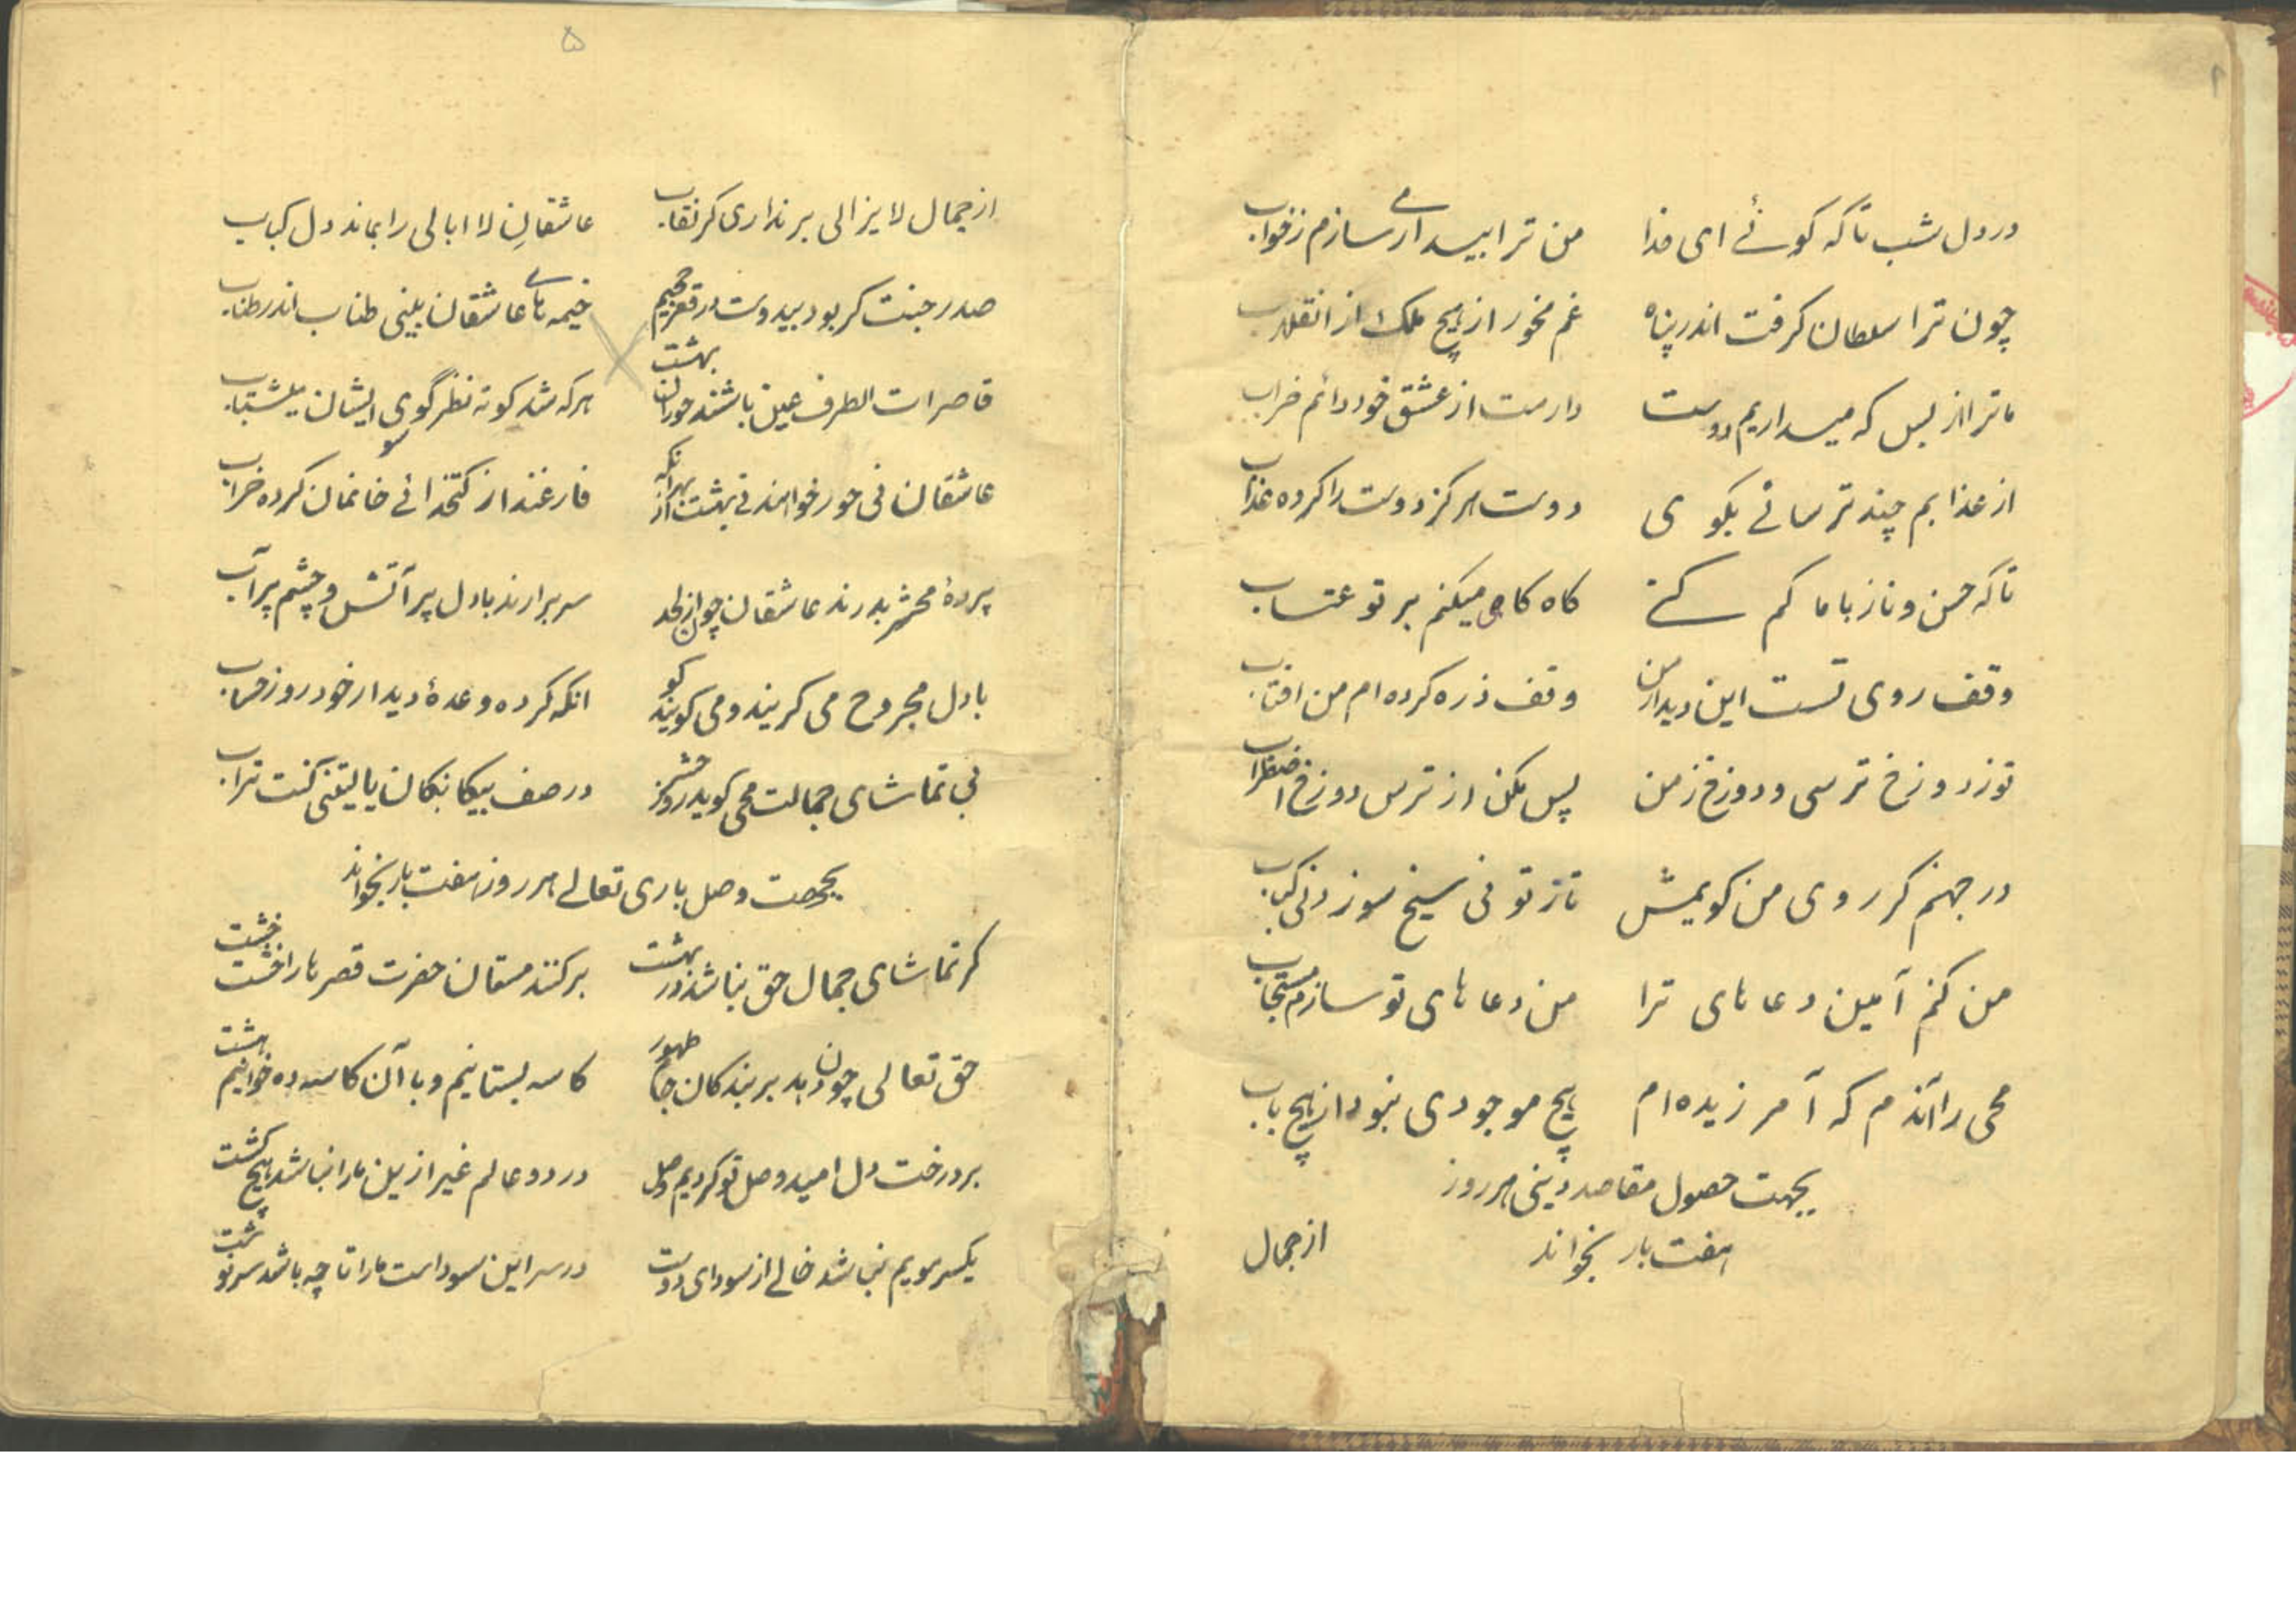 در دل شب تا که کوئے ای خدا من ترا بیدارمے سازم ز خواب
چون ترا سلطان کرفت اندر پناه غم مخور از هیچ ملک از انقلاب
ما ترا از بس که میداریم دوست دارمت از عشق خود دائم خراب
از عذابم چند ترسانے بکوی دوست هرکز دوست را کرده عذاب
تا که حسن و ناز با ما کم کنے کاه کاهی میکنم بر تو عتاب
وقف روی تست این دیدار من وقف ذره کرده ام من افتاب
تو ز دوزخ ترسی و دوزخ ز من پس مکن از ترس دوزخ اضطراب
در جهنم کر روی من کویمش تاز تو نی سیخ سوزد نی کباب
من کنم آمین دعاهای ترا من دعاهای تو سازم مستجاب
محی را آندم که آمرزیده ام هیچ موجودی نبود از هیچ باب
بجهت حصول مقاصد دینی هر روز
هفت بار بخواند
از جمال
۵
از جمال لایزالی بر نداری کر نقاب عاشقانِ لا ابالی را بماند دل کباب
صدر جنت کر بود بیدوست در قعر جحیم خیمه هاے عاشقان بینی طناب اندر طناب
قاصرات الطرف عین باشند حوران بهشت هرکه شد کوته نظر گوی ایشان میشتاب
سو
عاشقان نی حور خواهند نے بهشت از بهر آنکه فارغند از کتخدائے خانمان کرده خراب
پردهٔ محشر بدرند عاشقان چون از لحد سر برارند با دل پر آتش و چشم پر آب
با دل مجروح می کریند و می کویند کو انکه کرده وعدهٔ دیدار خود روز حساب
بی تماشای جمالت محی کوید روز حشر در صف بیکانکان یا لیتنی کنت تراب
بجهت وصل باری تعالے هر روز هفت بار بخواند
کر تماشای جمال حق نباشد در بهشت بر کنند مستان حضرت قصرها را خشت خشت
حق تعالی چون دهد بر بندکان جام طهور کاسه بستانیم و با آن کاسه ده خواهیم هشت
بر درخت دل امید وصل تو کردیم وصل در دو عالم غیر ازین ما را نباشد هیچ کشت
یکسر مویم نباشد خالے از سودای دوست در سر این سوداست ما را تا چه باشد سرنوشت